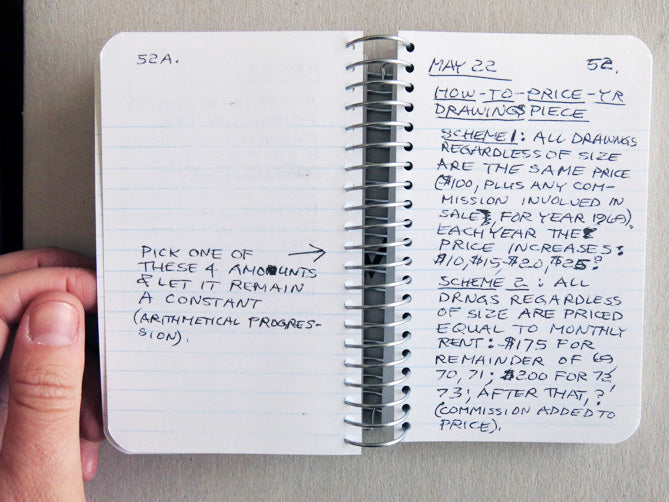 52A.
PICK ONE OF
THESE 4 AMOUNTS
& LET IT REMAIN
A CONSTANT
(ARITHMETICAL PROGRES-
SION).
MAY 22 52.
HOW-TO-PRICE-YR
DRAWINGS PIECE
SCHEME 1: ALL DRAWNGS
REGARDLESS OF SIZE
ARE THE SAME PRICE
($100, PLUS ANY COM-
MISSION INVOLVED IN
SALE, FOR YEAR 1969).
EACH YEAR THE
PRICE INCREASES:
$10, $15, $20, $25?
SCHEME 2: ALL
DRNGS REGARDLESS
OF SIZE ARE PRICED
EQUAL TO MONTHLY
RENT: $175 FOR
REMAINDER OF 69,
70, 71; $200 FOR 72,
73; AFTER THAT, ?
(COMMISSION ADDED TO
PRICE).